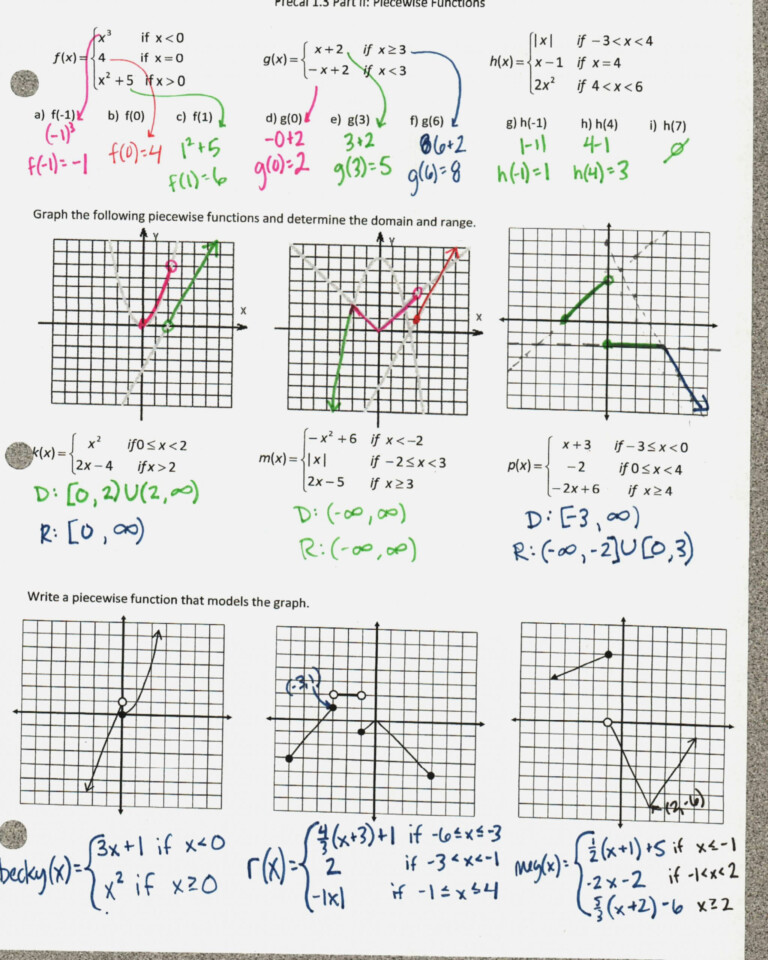 Precal 1.3 Part II: Piecewise Functions
f(x)= { x³ if x<0
4 if x=0
x²+5 if x>0
g(x)= { x+2 if x≥3
−x+2 if x<3
h(x)= { |x| if −3<x<4
x−1 if x=4
2x² if 4<x<6
a) f(-1) b) f(0) c) f(1) d) g(0) e) g(3) f) g(6) g) h(-1) h) h(4) i) h(7)
(-1)³ 1²+5 -0+2 3+2 6+2 |-1| 4-1 ∅
f(-1)=-1 f(0)=4 f(1)=6 g(0)=2 g(3)=5 g(6)=8 h(-1)=1 h(4)=3
Graph the following piecewise functions and determine the domain and range.
y
x
y
x
k(x)= { x² if 0≤x<2
2x−4 if x>2
D: [0,2)∪(2,∞)
R: [0,∞)
m(x)= { −x²+6 if x<−2
|x| if −2≤x<3
2x−5 if x≥3
D: (-∞,∞)
R: (-∞,∞)
p(x)= { x+3 if −3≤x<0
−2 if 0≤x<4
−2x+6 if x≥4
D: [-3,∞)
R: (-∞,-2]∪[0,3)
Write a piecewise function that models the graph.
(-3,1)
(2,-6)
becky(x)= { 3x+1 if x<0
x² if x≥0
r(x)= { 4/3(x+3)+1 if -6≤x≤-3
2 if -3<x<-1
-|x| if -1≤x≤4
meg(x)= { 1/2(x+1)+5 if x≤-1
-2x-2 if -1<x<2
5/3(x+2)-6 x≥2